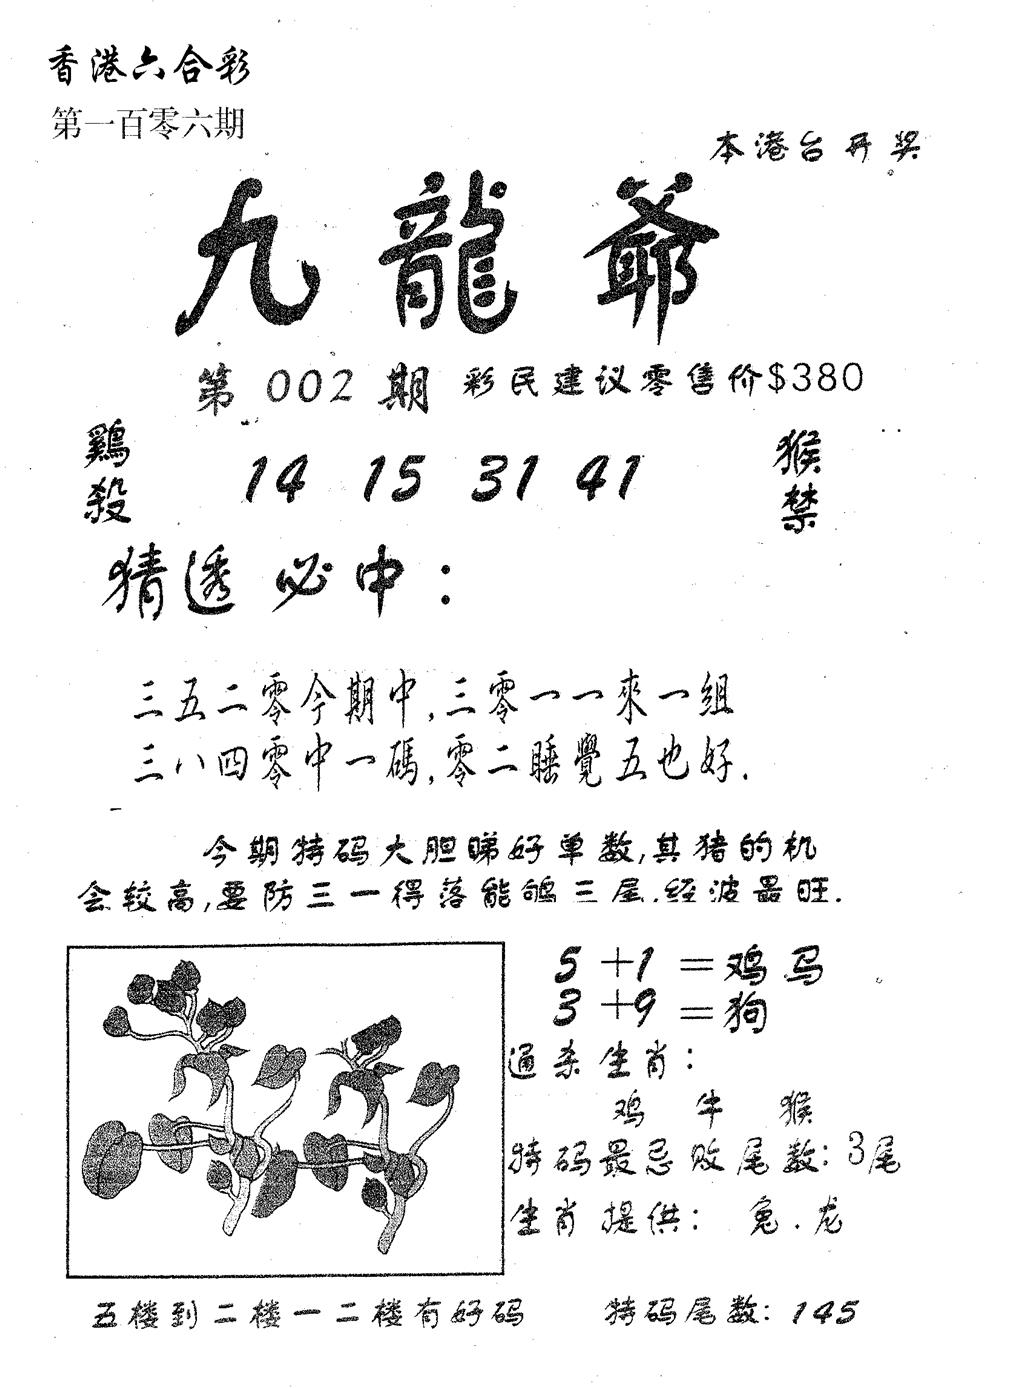 香港六合彩
第一百零六期
本港台开奖
九龍爺
第002期 彩民建议零售价$380
鷄殺 14 15 31 41 猴禁
猜透必中：
三五二零今期中,三零一一來一組
三八四零中一碼,零二睡覺五也好.
今期特码大胆睇好单数,其猪的机
会较高,要防三一得落能鸲三尾.经波最旺.
5+1=鸡马
3+9=狗
通杀生肖：
鸡 牛 猴
特码最忌败尾数：3尾
生肖提供： 兔.龙
五楼到二楼一二楼有好码 特码尾数：145